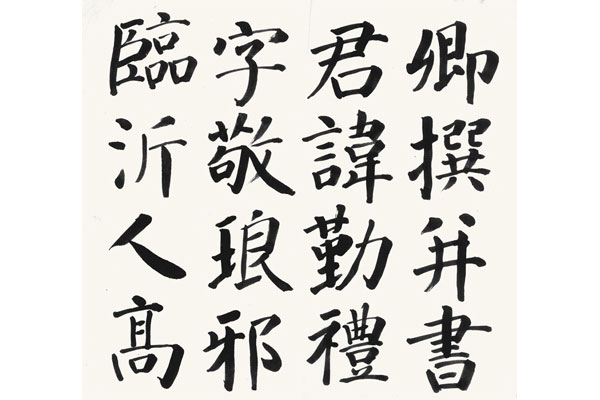 卿撰并書
君諱勤禮
字敬琅邪
臨沂人高